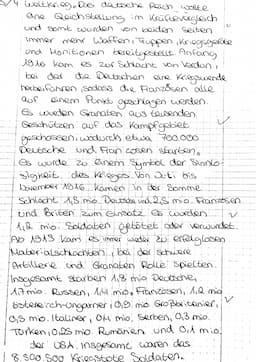 Weltkrieg. Das deutsche Reich wollte
eine Gleichstellung im Kräftevergleich
und somit wurden von beiden Seiten
immer mehr Waffen, Truppen, Kriegsgeräte
und Monitionen bereitgestellt. Anfang
1916 kam es zur Schlacht von Verdun,
bei der die Deutschen eine Kriegswende
herbeiführen sodass die Franzosen alle
auf einem Punkt geschlagen werden.
Es wurden Granaten aus tausenden
Geschützen auf das Kampfgebiet
geschossen, wodurch etwa 700.000
Deutsche und Franzosen starben.
Es wurde zu einem Symbol der Sinnlo-
sigkeit des Krieges. Von Juli bis
November 1916 kamen in der Somme
Schlacht 1,5 mio. Deutsche und 2,5 mio. Franzosen
und Briten zum Einsatz. Es wurden
1,2 mio. Soldaten getötet oder verwundet.
Ab 1915 kam es immer wieder zu erfolglosen
Materialschlachten, bei der schwere
Artillerie und Granaten Rolle spielten.
Insgesamt starben 1,8 mio Deutsche,
1,7 mio. Russen, 1,4 mio, Franzosen, 1,2 mio
Österreich-Ungarner, 0,9 mio. Großbritannier,
0,5 mio. Italiner, 0,4 mio. Serben, 0,3 mio.
Türken, 0,25 mio. Rumänien und 0,1 mio.
der USA. Insgesamt waren das
8.500.500 Kriegstote Soldaten.